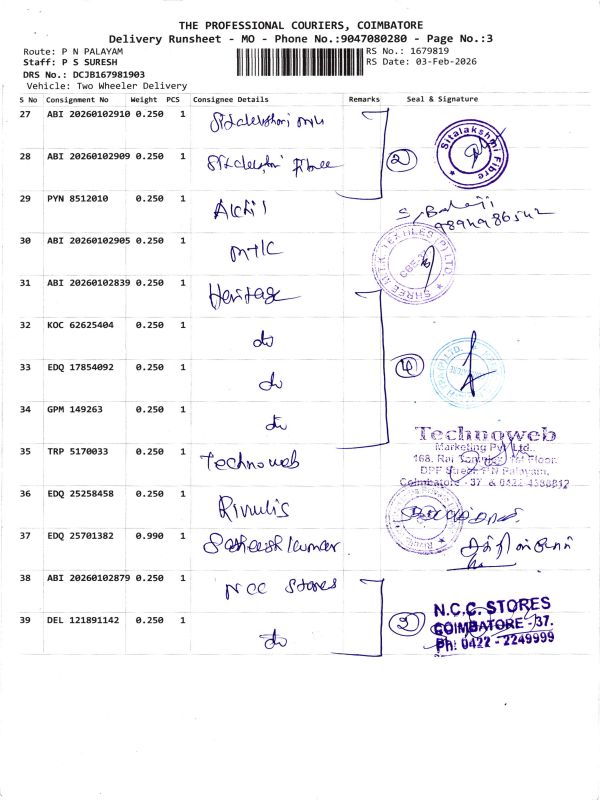 THE PROFESSIONAL COURIERS, COIMBATORE
Delivery Runsheet - MO - Phone No.:9047080280 - Page No.:3
Route: P N PALAYAM
RS No.: 1679819
Staff: P S SURESH
RS Date: 03-Feb-2026
DRS No.: DCJB167981903
Vehicle: Two Wheeler Delivery
S No Consignment No Weight PCS Consignee Details Remarks Seal & Signature
27 ABI 20260102910 0.250 1
28 ABI 20260102909 0.250 1 Fibree 2 Sitalakshmi Fibre
29 PYN 8512010 0.250 1 Akhil S. Balaji
9894986542
30 ABI 20260102905 0.250 1 MTTC SHREE M.T.K. TEXTILES (P) LTD
31 ABI 20260102839 0.250 1 Heritage
32 KOC 62625404 0.250 1 do
33 EDQ 17854092 0.250 1 do 4
34 GPM 149263 0.250 1 do
35 TRP 5170033 0.250 1 Technoweb Technoweb
Marketing Pvt Ltd.,
168, Rai Floor,
DPF Street, P.N Palayam,
Coimbatore - 37 & 0422-4388812
36 EDQ 25258458 0.250 1 Rivulis
37 EDQ 25701382 0.990 1 Satheesh kumar
38 ABI 20260102879 0.250 1 NCC Stores N.C.C. STORES
39 DEL 121891142 0.250 1 do 2 COIMBATORE -37.
Ph: 0422 - 2249999